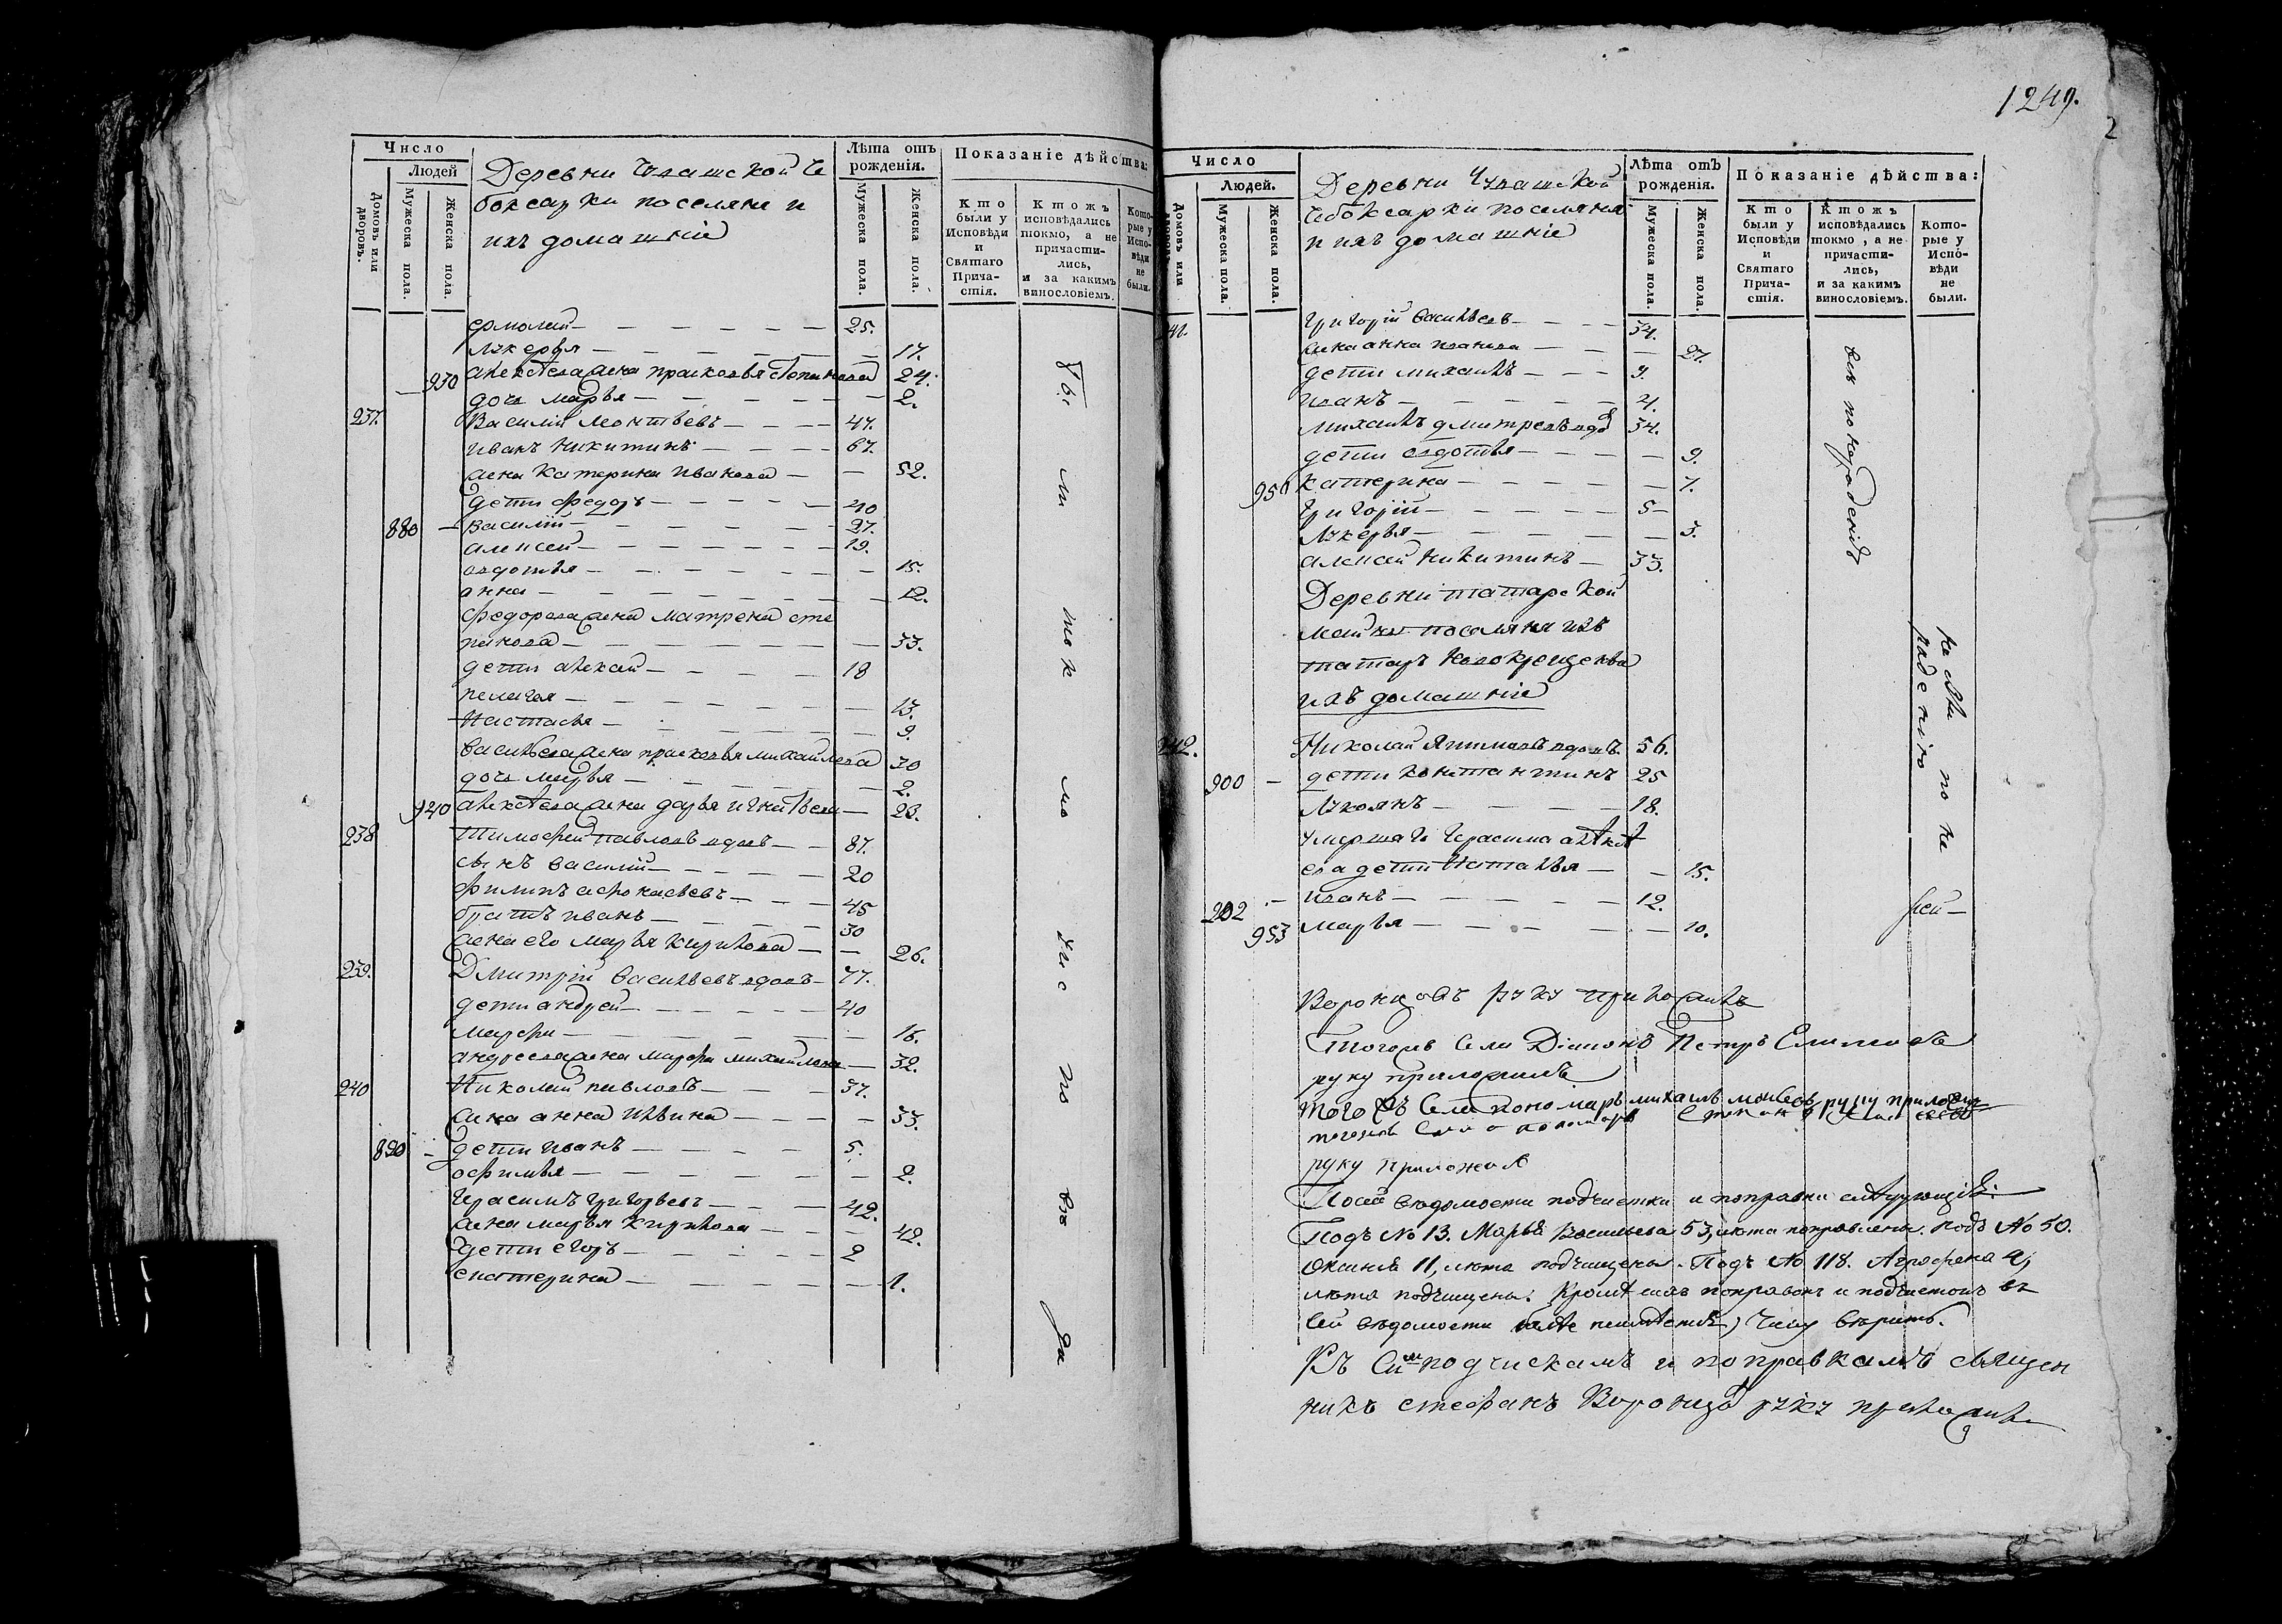 Число
Людей
Домовъ или дворовъ.
Мужеска пола.
Женска пола.
Деревни Чувашской Че
боксарки поселяне и
ихъ домашніе
Лѣта отъ рожденія.
Мужеска пола.
Женска пола.
Показаніе дѣйства:
Кто были у Исповѣди и Святаго Прича-стія.
Ктожъ исповѣдались токмо, а не причасти-лись, и за какимъ винословіемъ.
Кото-рые у Испо-вѣди не были.
ермолай — 25.
Лукерья — 17.
930 жена прасковья 24.
дочь марья — 2.
237. Василій Леонтьевъ — 47.
иванъ никитинъ — 67.
жена катерина иванова — 52.
дети федоръ — 40
880 — василій — 27.
алексей — 19.
авдотья — 15.
анна — 12.
федорова жена матрена сте
панова — 33.
дети — 18
пелагея — 13.
настасья — 9.
васильева жена прасковья михайлова 30
дочь марья — 2.
940 жена дарья игнатьева — 23.
238 тимофей павловъ вдовъ — 87.
сынъ василій — 20
филипъ афонасьевъ — 45
братъ иванъ — 30
жена его марья кирилова — 26.
239. Дмитрій васильевъ вдовъ — 77.
дети андрей — 40
марфа — 16.
андреева жена марфа михайлова — 32.
240 Николай павловъ — 37.
жена анна ильина — 33.
890 — дети иванъ — 5.
офимья — 2.
герасимъ григорьевъ — 42.
жена марья кирилова — 42.
дети егоръ — 2
екатерина — 1.
1249.
2
Число
Людей.
Домовъ или
Мужеска пола.
Женска пола.
Деревни Чувашской
Чебоксарки поселяне
и ихъ домашніе
Лѣта отъ рожденія.
Мужеска пола.
Женска пола.
Показаніе дѣйства:
Кто были у Исповѣди и Святаго Прича-стія.
Ктожъ исповѣдались токмо, а не причасти-лись, и за какимъ винословіемъ.
Кото-рые у Испо-вѣди не были.
григорій васильевъ — 34.
жена анна иванова — 27.
дети михаилъ — 9.
иванъ — 4.
михаилъ дмитревъ вдо 34.
дети авдотья — 9.
950 катерина — 7.
григорій — 5 —
лукерья — 3.
алексей никитинъ — 33.
Деревни татарской
майны поселяня изъ
татаръ новокрещеныя
ихъ домашніе
242. Николай вдовъ 56.
900 — дети константинъ 25
лукоянъ — 18.
умершаго герасима
ева дети наталья — 15.
902 иванъ — 12.
953 марья — 10.
не были по не
радению
Воронцовъ руку приложилъ
тогожъ села Діаконъ Петръ
руку приложилъ
того жъ села пономарь михаилъ моисеевъ руку приложилъ
тогожъ села пономарь
руку приложилъ
Посей ведомости подчистки и поправки следующие:
Подъ № 13. Марья Васильева 53, лета поправлены. Подъ № 50.
Оксинья 11, лета подчищены. Подъ № 118. Агрофена 4,
лета подчищены. Кроме сихъ поправокъ и подчистокъ въ
сей ведомости верить.
Къ симъ подчискамъ и поправкамъ священ
никъ стефанъ Воронцовъ руку приложилъ